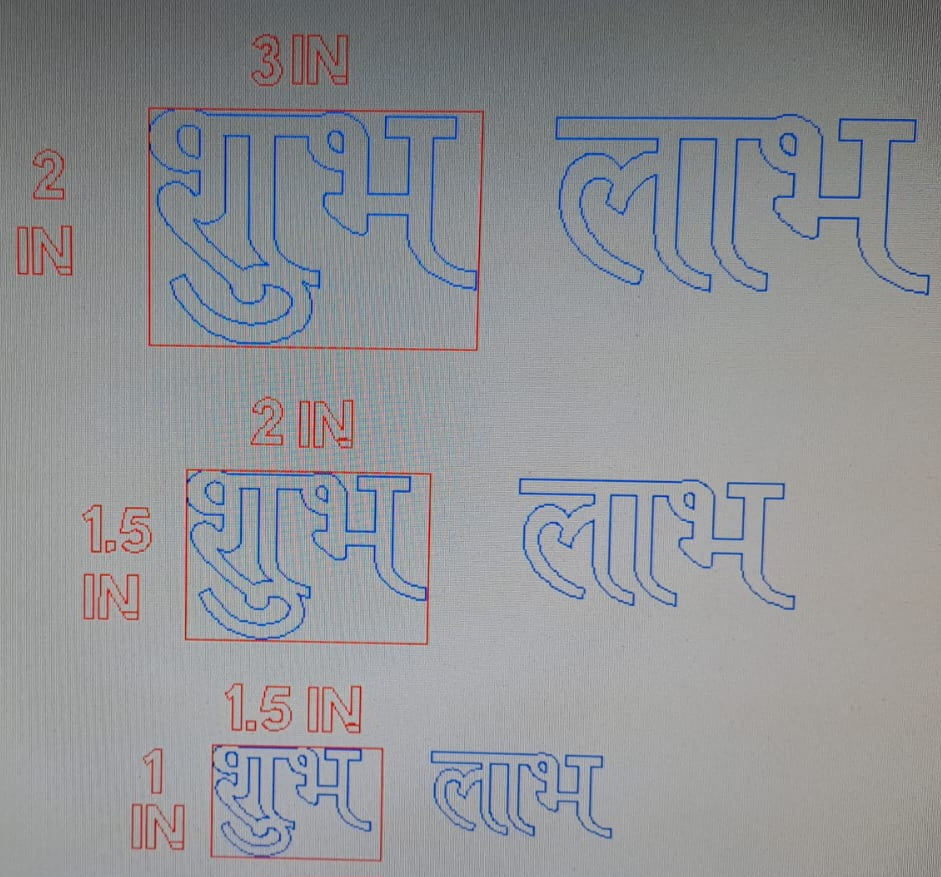 3 IN
2
IN
शुभ लाभ
2 IN
1.5
IN
शुभ लाभ
1.5 IN
1
IN
शुभ लाभ